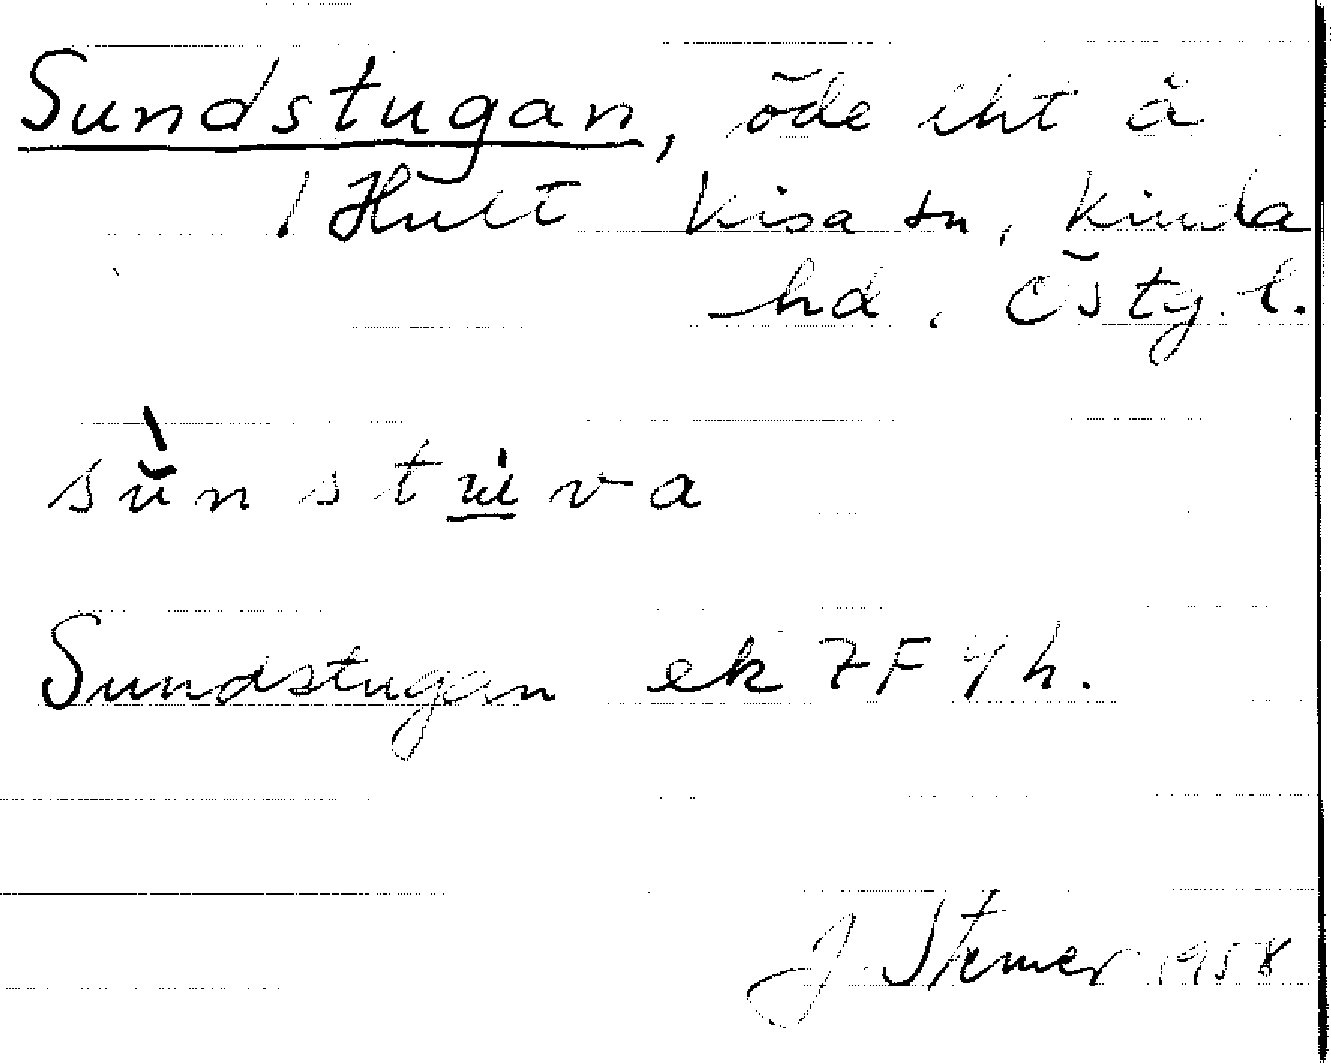 Sundstugan, öde lht å
1 Hult Kisa sn, Kinda
hd, Östg. l.
sùnstu̲va
Sundstugan ek 7F 4h.
J. Stemer 1958